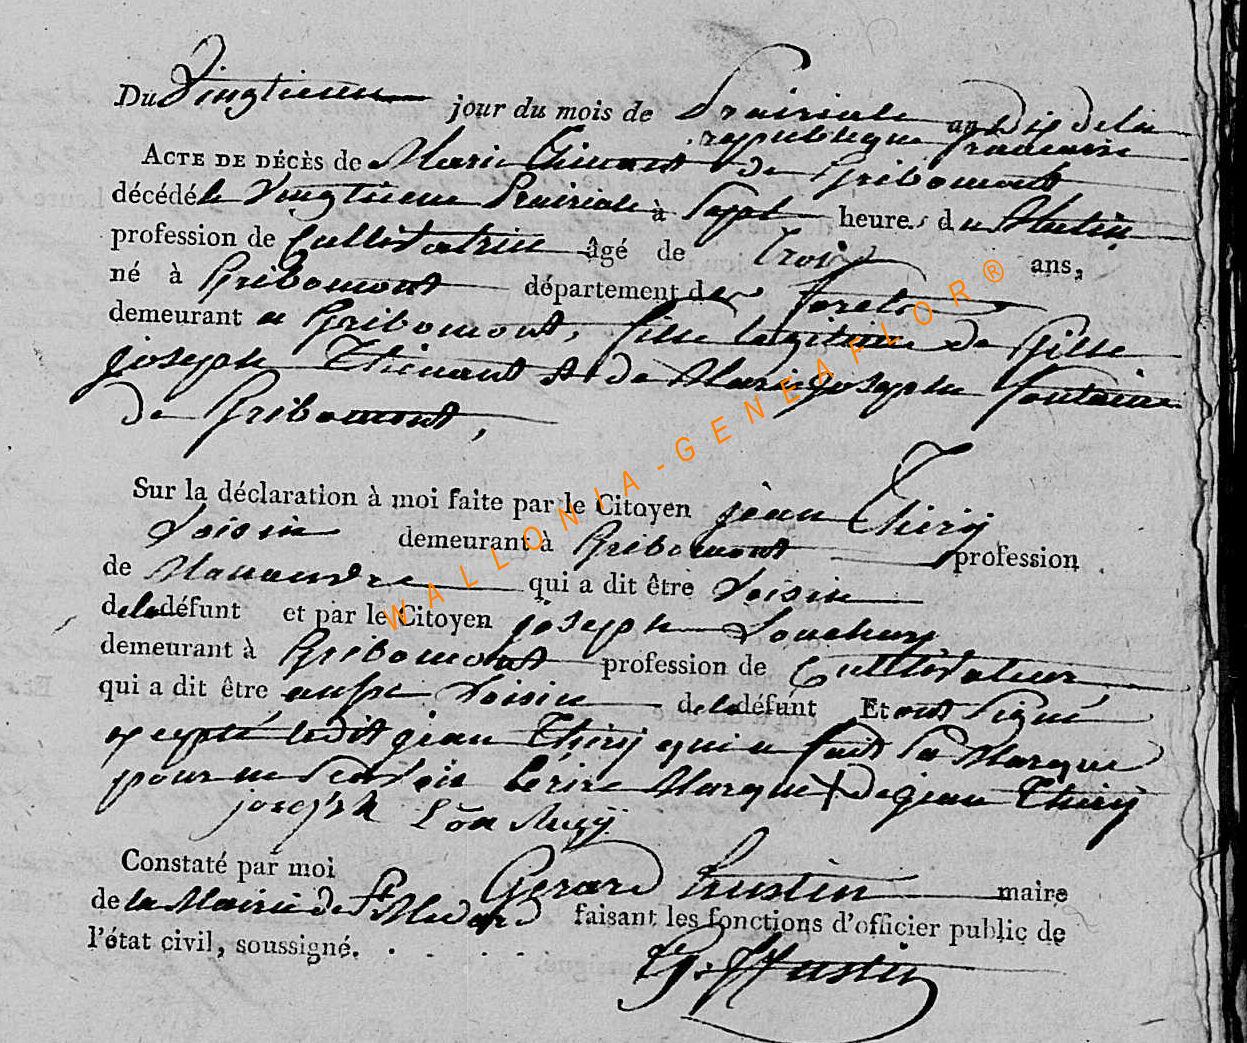 Du Vingtieme jour du mois de Prairiale an Dix de la
republique francaise
ACTE DE DÉCÈS de Marie Thienart de Gribomont
décédé le Vingtieme Prairiale à Sept heures du Matin
profession de Cultivatrice âgé de Trois ans,
né à Gribomont département des forets
demeurant a Gribomont, fille legitime de Gille
joseph Thienart et de Marie joseph fontaine
de Gribomont,
Sur la déclaration à moi faite par le Citoyen jean Thiry
Voisin demeurant à Gribomont profession
de Manoeuvre qui a dit être Voisin
de la défunt et par le Citoyen joseph
demeurant à Gribomont profession de Cultivateur
qui a dit être aussi Voisin de la défunt Et ont Signé
excepté ledit jean Thiry qui a fait Sa Marque
pour ne Scavoir Ecrire Marque + De jean Thiry
joseph
Constaté par moi Gerard hustin maire
de la Mairie de St Medard faisant les fonctions d'officier public de
l'état civil, soussigné. . . . . .
G. hustin
WALLONIA-GENEAFLOR®